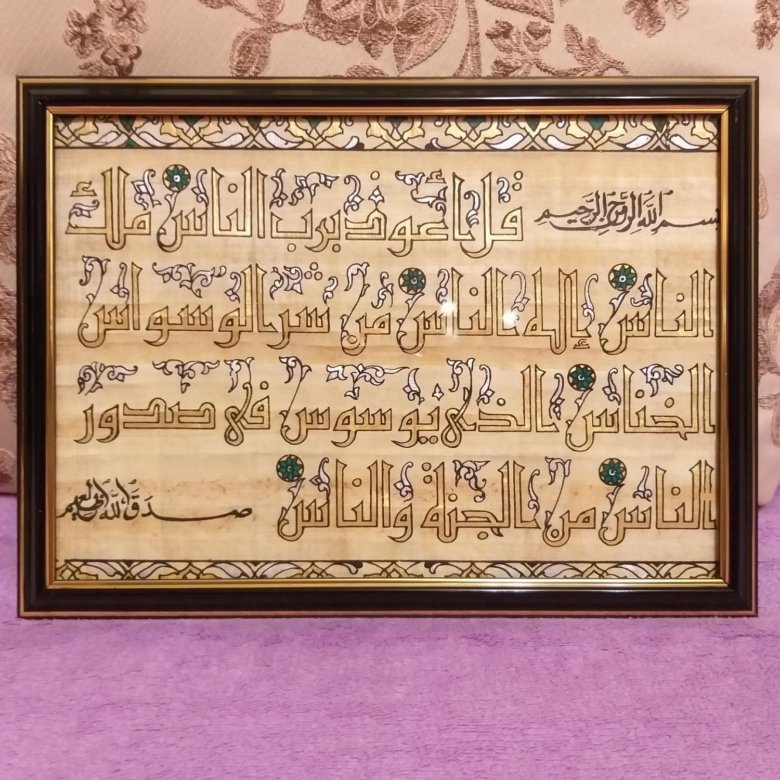 بسم الله الرحمن الرحيم قل أعوذ برب الناس ملك
الناس إله الناس من شر الوسواس
الخناس الذي يوسوس في صدور
الناس من الجنة والناس صدق الله العظيم